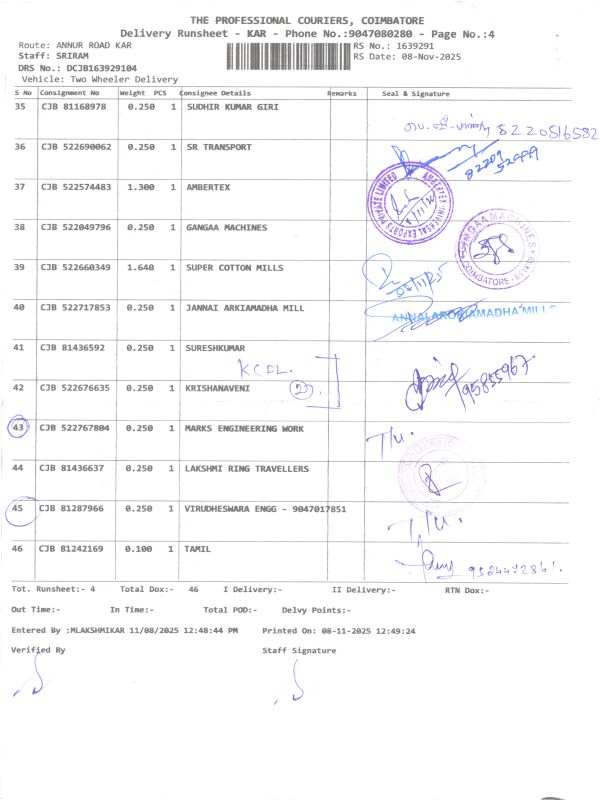 THE PROFESSIONAL COURIERS, COIMBATORE
Delivery Runsheet - KAR - Phone No.:9047080280 - Page No.:4
Route: ANNUR ROAD KAR RS No.: 1639291
Staff: SRIRAM RS Date: 08-Nov-2025
DRS No.: DCJB163929104
Vehicle: Two Wheeler Delivery
S No Consignment No Weight PCS Consignee Details Remarks Seal & Signature
35 CJB 81168978 0.250 1 SUDHIR KUMAR GIRI
8220816582
36 CJB 522690062 0.250 1 SR TRANSPORT
82209
52999
37 CJB 522574483 1.300 1 AMBERTEX
AMBERTEX UNIVERSAL EXPORTS PRIVATE LIMITED
38 CJB 522049796 0.250 1 GANGAA MACHINES
GANGAA MACHINES
COIMBATORE
39 CJB 522660349 1.640 1 SUPER COTTON MILLS
08/11/25
40 CJB 522717853 0.250 1 JANNAI ARKIAMADHA MILL
ANNAI AROKIAMADHA MILLS
41 CJB 81436592 0.250 1 SURESHKUMAR
KCDL.
42 CJB 522676635 0.250 1 KRISHANAVENI
43 CJB 522767804 0.250 1 MARKS ENGINEERING WORK
T/U.
44 CJB 81436637 0.250 1 LAKSHMI RING TRAVELLERS
45 CJB 81287966 0.250 1 VIRUDHESWARA ENGG - 9047017851
T/U.
46 CJB 81242169 0.100 1 TAMIL
9524472861.
Tot. Runsheet:- 4 Total Dox:- 46 I Delivery:- II Delivery:- RTN Dox:-
Out Time:- In Time:- Total POD:- Delvy Points:-
Entered By :MLAKSHMIKAR 11/08/2025 12:48:44 PM Printed On: 08-11-2025 12:49:24
Verified By Staff Signature